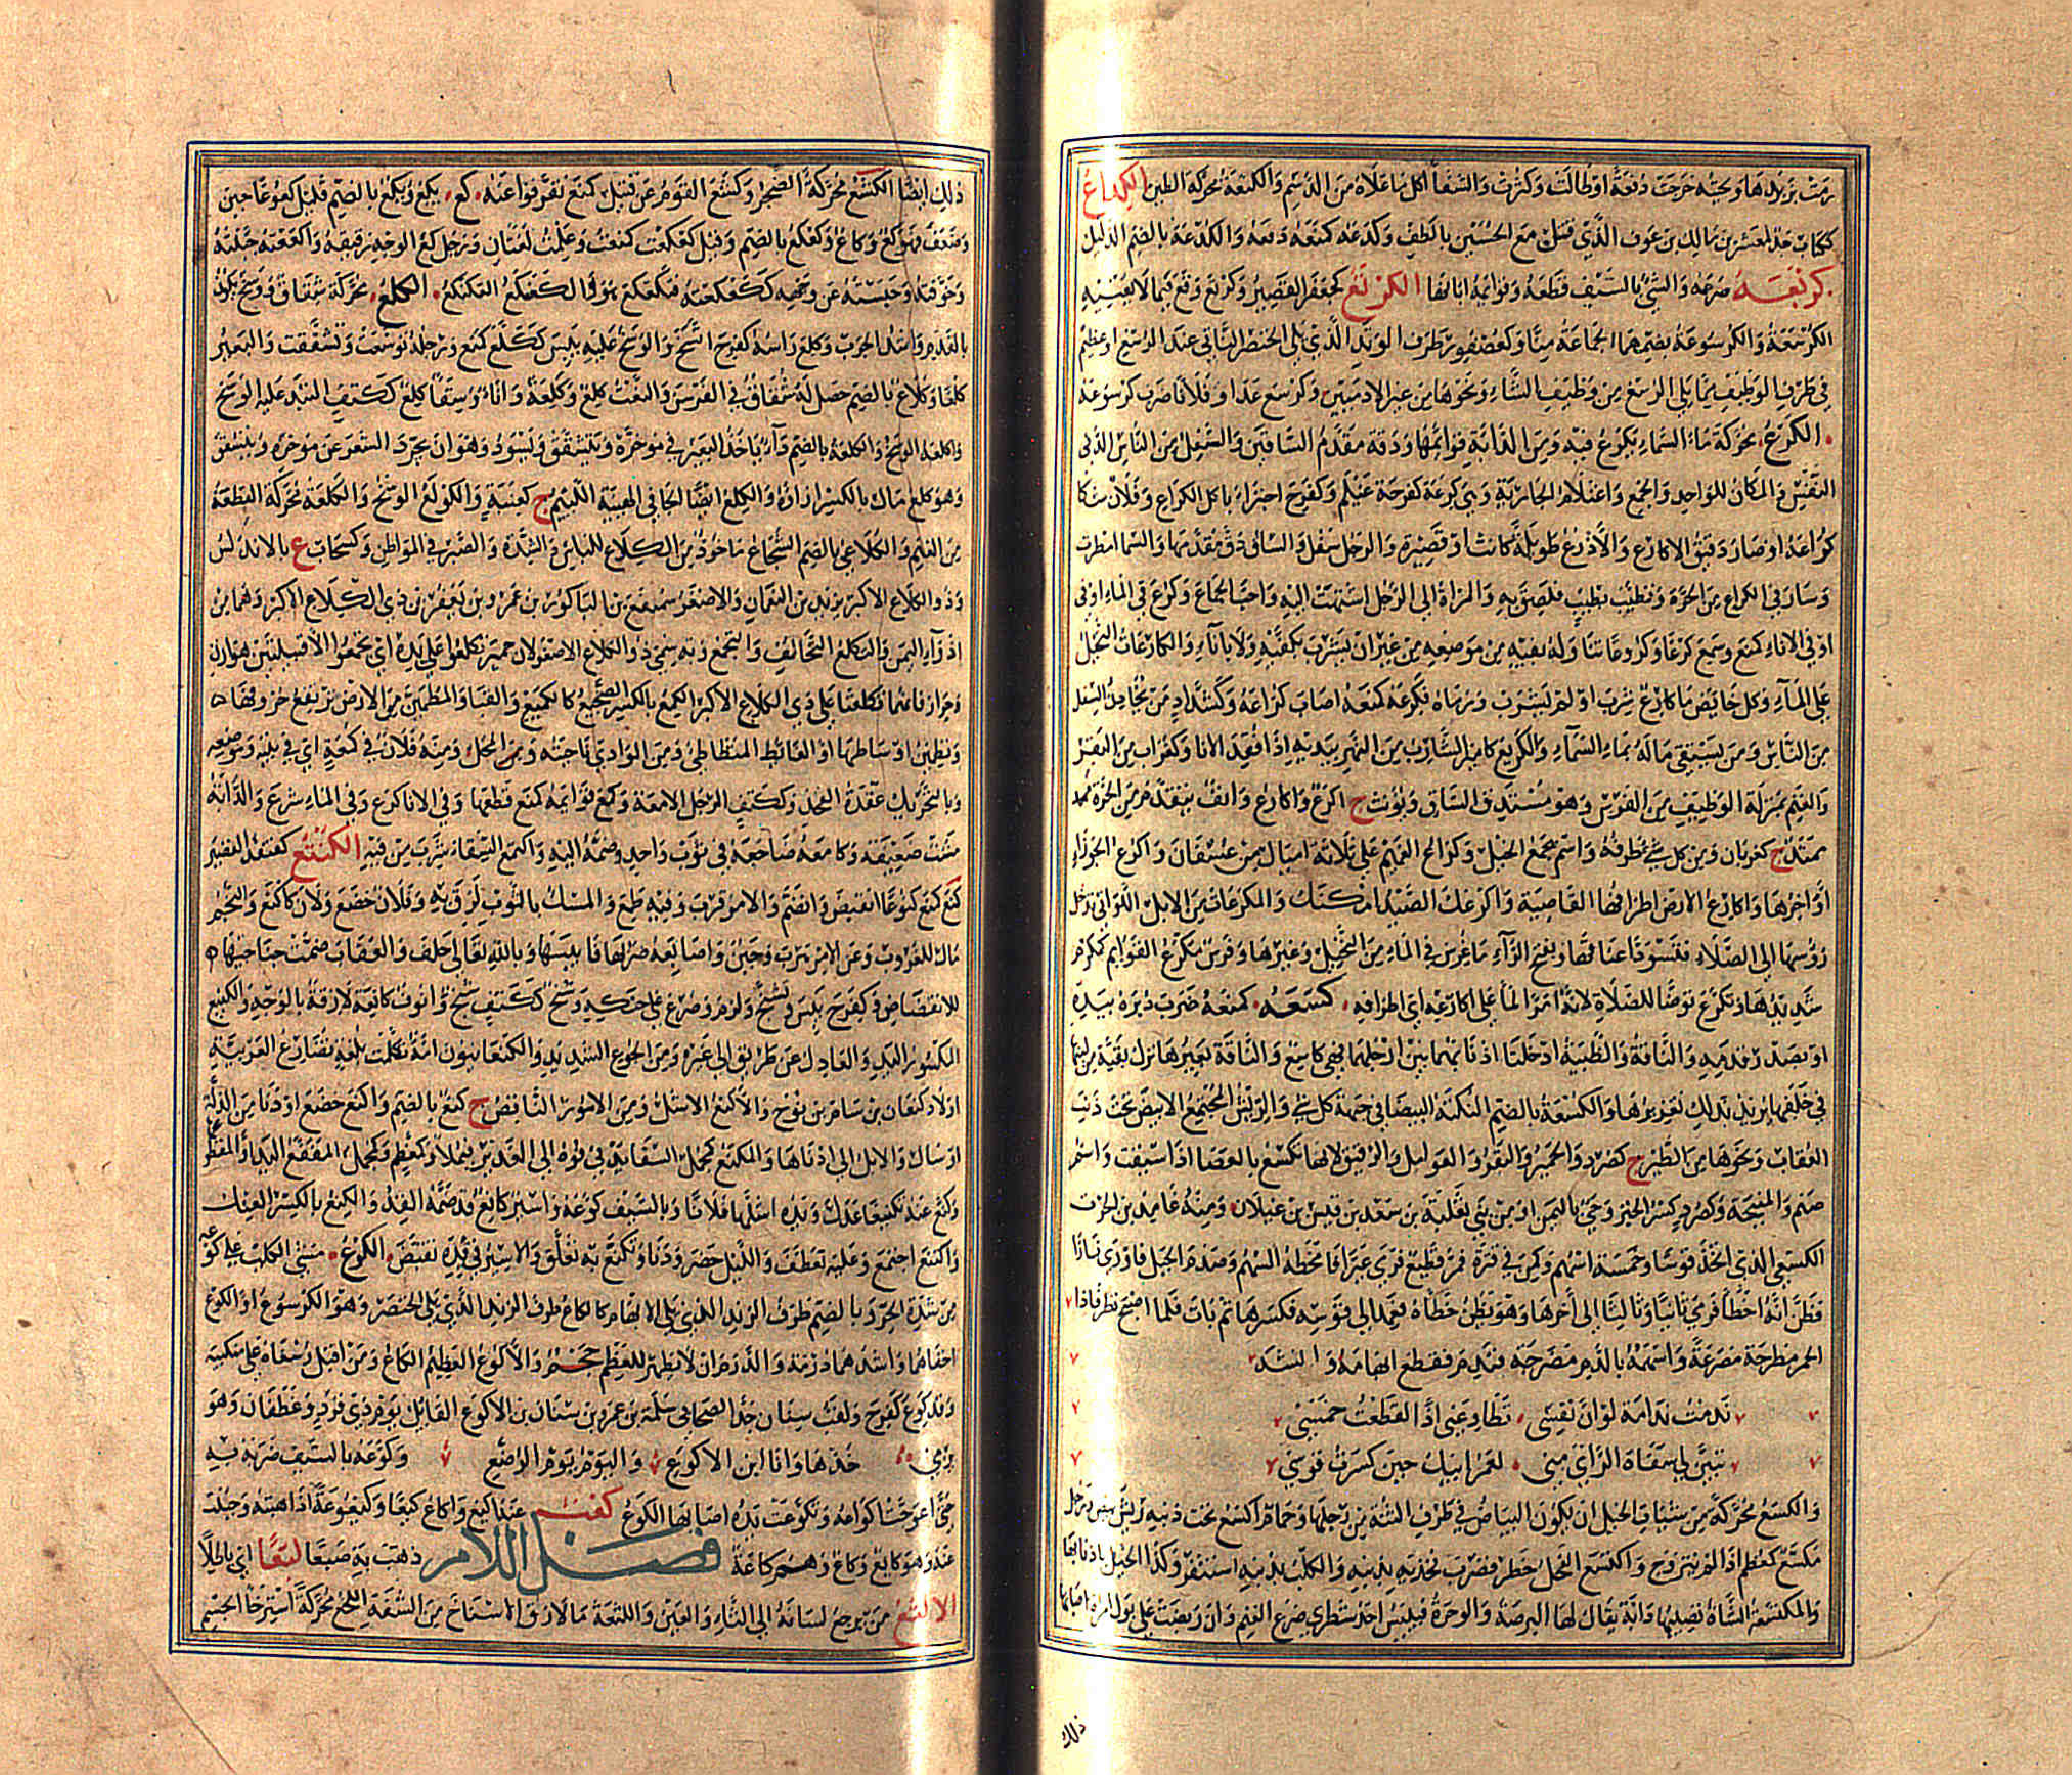 رمت بزبدها ولحيته خرجت دفعة او طالت وكثرت والسقا اكل ما علاه من الدسم والكثعة محركة الطين الكداع
ككتاب جد لمعشر بن مالك بن عوف الذي قتل مع الحسين بالطف وكدعه كمنعه دفعه والكدعة بالضم الذليل
كرتعه صرعه والشيء بالسيف قطعه وقوائمه ابانها الكرتع كجعفر القصير وكرتع وقع فيما لا يعنيه
الكرسعة والكرسوعة بضمهما الجماعة منا وكعصفور طرف الزند الذي يلي الخنصر الناتي عند الرسغ او عظيم
في طرف الوظيف مما يلي الرسغ من وظيف الشاء ونحوها من غير الادميين وكرسع عدا وفلانا ضرب كرسوعه
الكرع محركة ماء السماء يكرع فيه ومن الدابة قوائمها ودقة مقدم الساقين والسفل من الناس الدني
النفس والمكان للواحد والجمع واغتلام الجارية وهي كرعة كفرحة غيلم وكفرح اجتزاء باكل الكراع وفلان شكا
كراعه او صار دقيق الاكارع والاذرع طويلة كانت او قصيرة والرجل سفل والساق دق مقدمها والسما امطرت
وسار في الكراع من الحرة وتطيب بطيب فلصق به والمراة الى الرجل اشتهت اليه واحبت الجماع وكرع في الماء او في
او في الاناء كمنع وسمع كرعا وكروعا تناوله بفيه من موضعه من غير ان يشرب بكفيه ولا باناء والكارعات النخل
على الماء وكل خايض ما كارع شرب او لم يشرب ورماه فكرعه كمنعه اصاب كراعه وكشداد من يخادن السفل
من الناس ومن يسقي ماله بماء السماء والكريع كامير الشارب من النهر بيديه اذا فقد الانا وكغراب من البقر
والغنم بمنزلة الوظيف من الفرس وهو مستدق الساق ويؤنث ج اكرع واكارع وانف يتقدم من الحرة ممتد
ممتد ج كغربان ومن كل شي طرفه واسم يجمع الخيل وكراع الغميم على ثلاثة اميال من عسفان واكرع الجوزاء
اواخرها واكارع الارض اطرافها القاصية واكرعك الصيد امكنك والمكرعات من الابل اللواتي تدخل
رؤسها الى الصلاء فتسود اعناقها وبفتح الراء ما غرس في الماء من النخيل وغيرها وفرس مكرع القوايم كمكرم
شديدها وتكرع توضا للصلاة لانه امر الما على اكارعه اي اطرافه كسعه كمنعه ضرب دبره بيده
او بصدر قدمه والناقة والظبية ادخلتا اذنابهما بين ارجلهما فهي كاسع والناقة بغبرها ترك بقية من لبنها
في خلفها يريد بذلك تغزيرها والكسعة بالضم النكتة البيضا في جبهة كل شي والريش المجتمع الابيض تحت ذنب
العقاب ونحوها من الطير ج كصرد والحمير والبقر والعوامل والرقيق لانها تكسع بالعصا اذا سيقت واسم
صنم والمنيحة وكصرد كسر الخبز وحي باليمن او من بني ثعلبة بن سعد بن قيس بن عيلان ومنه غامد بن الحرث
الكسعي الذي اتخذ قوسا وخمسة اسهم وكمن في قترة فمر قطيع فرمى عيرا فامخطه السهم وصدم الجبل فاورى نارا
فظن انه اخطا فرمى ثانيا وثالثا الى اخرها وهو يظن خطاه فعمد الى قوسه فكسرها ثم بات فلما اصبح نظر فاذا
الحمر مطرحة مصرعة واسهمه بالدم مضرجة فندم فقطع ابهامه وانشد
ندمت ندامة لو ان نفسي تطاوعني اذا لقطعت خمسي
تبين لي سفاه الراي مني لعمر ابيك حين كسرت قوسي
والكسع محركة من شيات الخيل ان يكون البياض في طرف الثنة من رجلها وحمام اكسع تحت ذنبه ريش بيض ورجل
مكسع كمعظم اذا لم يتزوج واكتسع الفحل خطر فضرب فخذيه بذنبه والكلب بذنبه استثفر وكذا الخيل باذنابها
والمكتسعة الشاة تصيبها دابة يقال لها البرصة والوحرة فييبس احد شطري ضرع الغنم وان ربضت على بول امراة اصابها
ذلك
ذلك ايضا الكشع محركة الضجر وكشع القوم عن قتيل كمنع تفرقوا عنه كع يكع ويكع بالضم قليل كعوعا جبن
وضعف فهو كع وكاع وكعكع بالضم وقيل كععت كمنعت وعلمت لغتان ورجل كع الوجه رقيقه واكعه جبنه
وخوفه وحبسه عن وجهه ككعكعه فتكعكع هو وا لكعنكع العكنكع الكلع محركة شقاق ووسخ يكون
بالقدم واشد الجرب وكلع راسه كفرح اتسخ والوسخ عليه يبس ككلع كمنع ورجله توسخت وتشققت والبعير
كلعا وكلاعا بالضم حصل له شقاق في الفرسن والنعت كلع وكلعة واناء وسقاء كلع ككتف التبد عليه الوسخ
واكلعه الوسخ والكلعة بالضم داء ياخذ البعير في موخره ويتشقق ويسود وهو ان يجرد الشعر عن موخره ويتشقق
وهو كلع مال بالكسر ازاؤه والكلع ايضا الجافي الهيئة اللئيم ج كعنبة والكولع الوسخ والكلعة محركة القطعة
من الغنم والكلاعي بالضم الشجاع ماخوذ من الكلاع للباس والشدة والصبر في المواطن وكسحاب ع بالاندلس
وذو الكلاع الاكبر يزيد بن النعمان والاصغر سميفع بن ناكور بن عمرو بن يعفر بن ذي الكلاع الاكبر وهما من
اذواء اليمن والتكلع التحالف والتجمع وبه سمي ذو الكلاع الاصغر لان حمير تكلعوا على يده اي تجمعوا الا قبيلتين هوازن
وحراز فانهما تكلعتا على ذي الكلاع الاكبر الكمع بالكسر الضجيع كالكميع والقبا والمطمئن من الارض ترتفع حروفه
وتطمئن اوساطها او الغائط المتطاطئ ومن الوادي ناحيته ومن المحل ومنه فلان في كمعه اي في بيته وموضعه
وبالتحريك عقدة الفخذ وككتف الرجل الامعة وكمع قوائمه كمنع قطعها وفي الانا كرع وفي الماء شرع والدابة
مشت ضعيفة وكامعه ضاجعه في ثوب واحد وضمه اليه واكتمع السقاء شرب من فيه الكنتع كقنفذ القصير
كنع كمنع كنوعا انقبض وانضم والامر قرب وفيه طمع والمسك بالثوب لزق به وفلان خضع ولان كاكنع والنجم
مال للغروب وعن الامر هرب وجبن واصابعه ضربها فايبسها وبالله تعالى حلف والعقاب ضمت جناحيها
للانقضاض وكفرح يبس وتشنج ولزم وصرع على حنكه وشيخ كنع ككتف شنج وانوف كانعة لازقة بالوجه والكنيع
المكسور اليد والعادل عن طريق الى غيره ومن الجوع الشديد والكنعانيون امة تكلمت بلغة تضارع العربية
اولاد كنعان بن سام بن نوح والاكنع الاشل ومن الامور الناقص ج كنع بالضم واكنع خضع او دنا من الذلة
او سال والابل الى ادناها والمكنع كمجمل السقا يدنى فوه الى الغدير فيملا وكمعظم وكمجمل المقفع اليد او المقطع
وكنع عنه تكنيعا عدل ويده اشلها وفلانا وبالسيف كوعه واسير كانع قد ضمه القد والكنع بالكسر العنك
واكتنع اجتمع وعليه تعطف والليل حضر ودنا وتكنع به تعلق والاسير في قده تقبض الكوع مشي الكلب على كوعه
من شدة الحر وبالضم طرف الزند الذي يلي الابهام كالكاع او طرف الزند الذي يلي الخنصر وهو الكرسوع او الكوع
اخفاهما واشدهما درمة والدرم ان لا يظهر للعظم حجم والاكوع العظيم الكاع ومن اقبل رسغاه على منكبيه
وقد كوع كفرح ولقب سنان جد الصحابي سلمة بن عمرو بن سنان بن الاكوع القائل يوم ذي قرد وغطفان وهو
يرمي خذها وانا ابن الاكوع واليوم يوم الرضع وكوعه بالسيف ضربه به
حتى اعوجت اكواعه وتكوعت يده اصابها الكوع كعت عنه اكيع واكاع كيعا وكيعوعة اذا هبته وجبنت
عنه وهو كايع وكاع وهم كاعة فصل اللام ذهب به ضبعا لبعا اي باطلا
الالثع من يرجع لسانه الى الثاء والعين واللثعة ما لازق الاسناخ من الشفة اللخع محركة استرخا الجسم